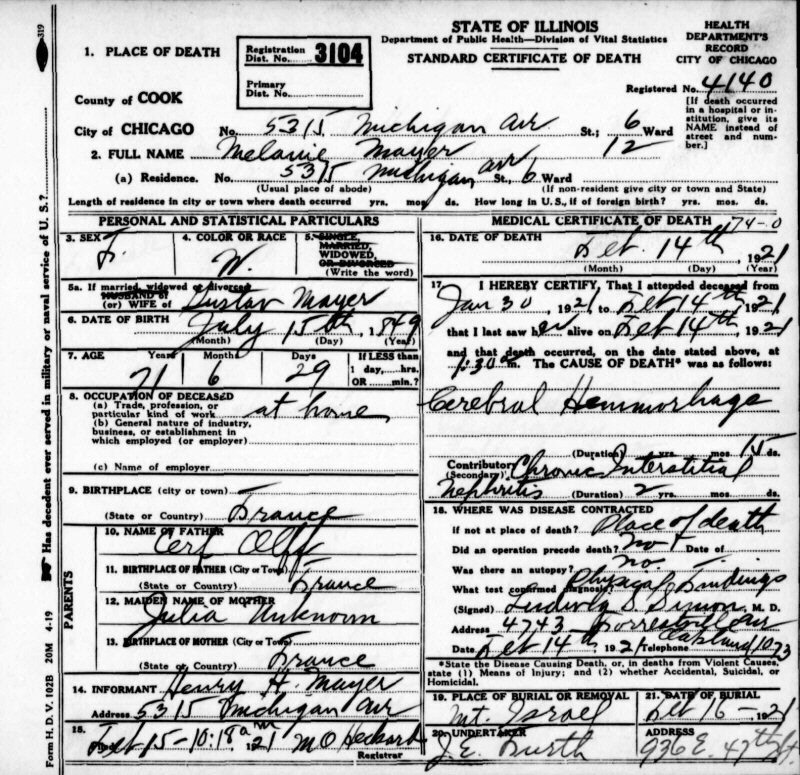 STATE OF ILLINOIS
Department of Public Health—Division of Vital Statistics
STANDARD CERTIFICATE OF DEATH
HEALTH
DEPARTMENT'S
RECORD
CITY OF CHICAGO
1. PLACE OF DEATH
Registration
Dist. No. 3104
Primary
Dist. No.
Registered No. 4140
[If death occurred
in a hospital or in-
stitution, give its
NAME instead of
street and num-
ber.]
County of COOK
City of CHICAGO No. 5315 Michigan Ave St.; 6 Ward
12
2. FULL NAME Melanie Mayer
(a) Residence. No. 5315 Michigan Ave St., 6 Ward
(Usual place of abode) (If non-resident give city or town and State)
Length of residence in city or town where death occurred yrs. mos. ds. How long in U.S., if of foreign birth? yrs. mos. ds.
PERSONAL AND STATISTICAL PARTICULARS
3. SEX F.
4. COLOR OR RACE W.
5. SINGLE,
MARRIED,
WIDOWED,
OR DIVORCED
(Write the word)
5a. If married, widowed or divorced
HUSBAND of
(or) WIFE of Gustav Mayer
6. DATE OF BIRTH July 15th, 1849
(Month) (Day) (Year)
7. AGE Years Months Days If LESS than
71 6 29 1 day,....hrs.
OR ....min.?
8. OCCUPATION OF DECEASED
(a) Trade, profession, or
particular kind of work at home
(b) General nature of industry,
business, or establishment in
which employed (or employer)
(c) Name of employer
9. BIRTHPLACE (city or town)
(State or Country) France
PARENTS
10. NAME OF FATHER
Cerf
11. BIRTHPLACE OF FATHER (City or Town)
(State or Country) France
12. MAIDEN NAME OF MOTHER
Julia Unknown
13. BIRTHPLACE OF MOTHER (City or Town)
(State or Country) France
14. INFORMANT Henry H. Mayer
Address 5315 Michigan Ave
15.
Filed Feb 15-10:18a 1921 M O Heckard
Registrar
MEDICAL CERTIFICATE OF DEATH
74-0
16. DATE OF DEATH
Feb. 14th, 1921
(Month) (Day) (Year)
17. I HEREBY CERTIFY, That I attended deceased from
Jan 30, 1921, to Feb 14th, 1921
that I last saw her alive on Feb 14th, 1921
and that death occurred, on the date stated above, at
1:30 a m. The CAUSE OF DEATH* was as follows:
Cerebral Hemmorhage
(Duration) yrs. mos. 15 ds.
Contributory (Secondary) Chronic Interstitial
Nephritis (Duration) 2 yrs. mos. ds.
18. WHERE WAS DISEASE CONTRACTED
If not at place of death? Place of death
Did an operation precede death? no Date of
Was there an autopsy? no.
What test confirmed diagnosis? Physical Findings
(Signed) Ludwig S. Simon, M. D.
Address 4743 Forrestville Ave
Date Feb 14th 1921 Telephone Oakland 1073
*State the Disease Causing Death, or, in deaths from Violent Causes,
state (1) Means of Injury; and (2) whether Accidental, Suicidal, or
Homicidal.
19. PLACE OF BURIAL OR REMOVAL
Mt. Israel
21. DATE OF BURIAL
Feb 16-1921
20. UNDERTAKER
J.E. Furth
ADDRESS
936 E. 47th St.
319
Has decedent ever served in military or naval service of U. S.?
Form H. D. V. 102B 20M 4-19